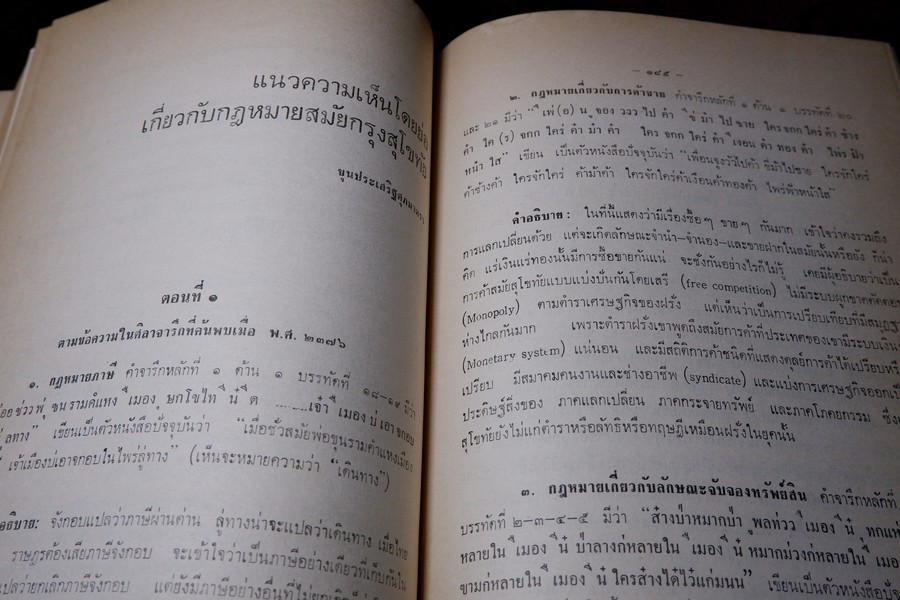 แนวความเห็นโดยย่อ
เกี่ยวกับกฎหมายสมัยกรุงสุโขทัย
ขุนประเสริฐศุภมาตรา
ตอนที่ ๑
ตามข้อความในศิลาจารึกที่ค้นพบเมื่อ พ.ศ. ๒๓๗๖
๑. กฎหมายภาษี คำจารึกหลักที่ ๑ ด้าน ๑ บรรทัดที่ ๑๘-๑๙ มีว่า
ชั่วพ่ ขุน รามคำแหง
ลูทาง" เขียนเป็นตัวหนังสือปัจจุบันว่า "เมื่อชั่วสมัยพ่อขุนรามคำแหงเมือง
เจ้าเมืองบ่เอาจกอบในไพร่ลู่ทาง" (เห็นจะหมายความว่า "เดินทาง")
อธิบาย: จังกอบแปลว่าภาษีผ่านด่าน ลู่ทางน่าจะแปลว่าเดินทาง เมื่อไทย
ราษฎรต้องเสียภาษีจังกอบ จะเข้าใจว่าเป็นภาษีอย่างเดียวที่เก็บกันใน
แปลว่ายกเลิกภาษีจังกอบ แต่ยังมีภาษีอย่างอื่นที่ไม่ยกเลิก
- ๑๔๕ -
๒. กฎหมายเกี่ยวกับการค้าขาย คำจารึกหลักที่ ๑ ด้าน ๑ บรรทัดที่ ๒๐
และ ๒๑ มีว่า
หนํา ใส" เขียน เป็นตัวหนังสือปัจจุบันว่า "เพื่อนจูงวัวไปค้า ขี่ม้าไปขาย ใครจักใคร่
ค้าช้างค้า ใครจักใคร่ ค้าม้าค้า ใครจักใคร่ค้าเงือนค้าทองค้า ไพร่ฟ้าหน้าใส"
คำอธิบาย: ในที่นี้แสดงว่ามีเรื่องซื้อๆ ขายๆ กันมาก เข้าใจว่าคงรวมถึง
การแลกเปลี่ยนด้วย แต่จะเกิดลักษณะจำนำ-จำนอง-และขายฝากในสมัยนั้นหรือยัง ก็น่า
คิด แร่เงินแร่ทองนั้นมีการซื้อขายกันแน่ จะชั่งกันอย่างไรก็ไม่รู้ เคยมีผู้อธิบายว่าเป็น
การค้าสมัยสุโขทัยแบบแบ่งปันกันโดยเสรี (free competition) ไม่มีระบบผูกขาดตัดตอน
(Monopoly) ตามตำราเศรษฐกิจของฝรั่ง แต่เห็นว่าเป็นการเปรียบเทียบที่มีสมมุติฐาน
ห่างไกลกันมาก เพราะตำราฝรั่งเขาพูดถึงสมัยการค้าที่ประเทศของเขามีระบบเงิน
(Monetary system) แน่นอน และมีสถิติการค้าชนิดที่แสดงดุลย์การค้าได้เปรียบหรือ
เปรียบ มีสมาคมคนงานและช่างอาชีพ (syndicate) และแบ่งการเศรษฐกิจออกเป็น
ประดิษฐ์สิ่งของ ภาคแลกเปลี่ยน ภาคกระจายทรัพย์ และภาคโภคยกรรม ซึ่ง
สุโขทัยยังไม่แก่ตำราหรือลัทธิหรือทฤษฎีเหมือนฝรั่งในยุคนั้น
๓. กฎหมายเกี่ยวกับลักษณะจับจองทรัพย์สิน คำจารึกหลักที่
บรรทัดที่ ๒-๓-๔-๕ มีว่า
เขียนเป็นตัวหนังสือปัจ